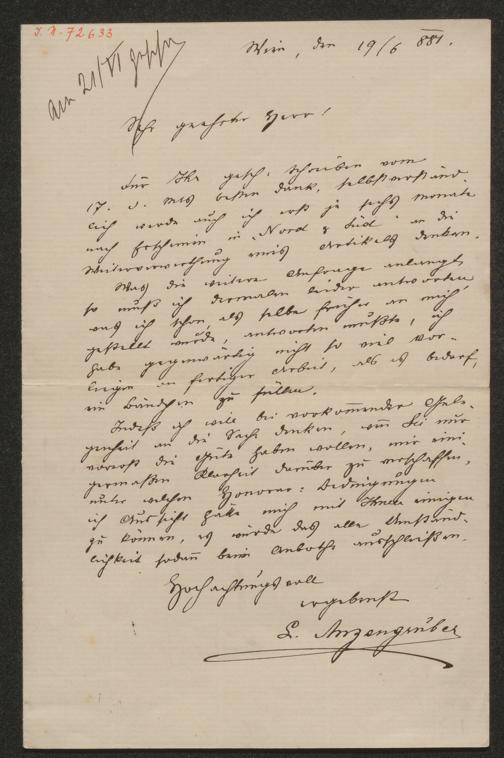 I. N. 72633
am 21/VI
Wien, den 19/6 881.
Sehr geehrter Herr!
Für Ihr gesch. Schreiben vom
17. d. Mts besten Dank, selbstverständ-
lich werde auch ich erst je sechs Monate
nach Erscheinen in "Nord & Süd" an die
Weiterverwerthung meines Artikels denken.
Was die weitere Anfrage anlangt
so muß ich dermalen leider antworten
was ich schon, als selbe früher an mich
gestellt wurde, antworten mußte, ich
habe gegenwärtig nicht so viel vor-
liegen an fertiger Arbeit, als es bedarf,
ein Bändchen zu füllen.
Indeß ich will bei vorkommender Gele-
genheit an die Sache denken, wenn Sie nur
vorerst die Güte haben wollen, mir eini-
germaßen Klarheit darüber zu verschaffen,
unter welchen Honorar-Bedingungen
ich Aussicht hätte mich mit Ihnen einigen
zu können, es würde das alle Umständ-
lichkeit sodann beim Anbothe ausschließen.
Hochachtungsvoll
ergebenst
L. Anzengruber